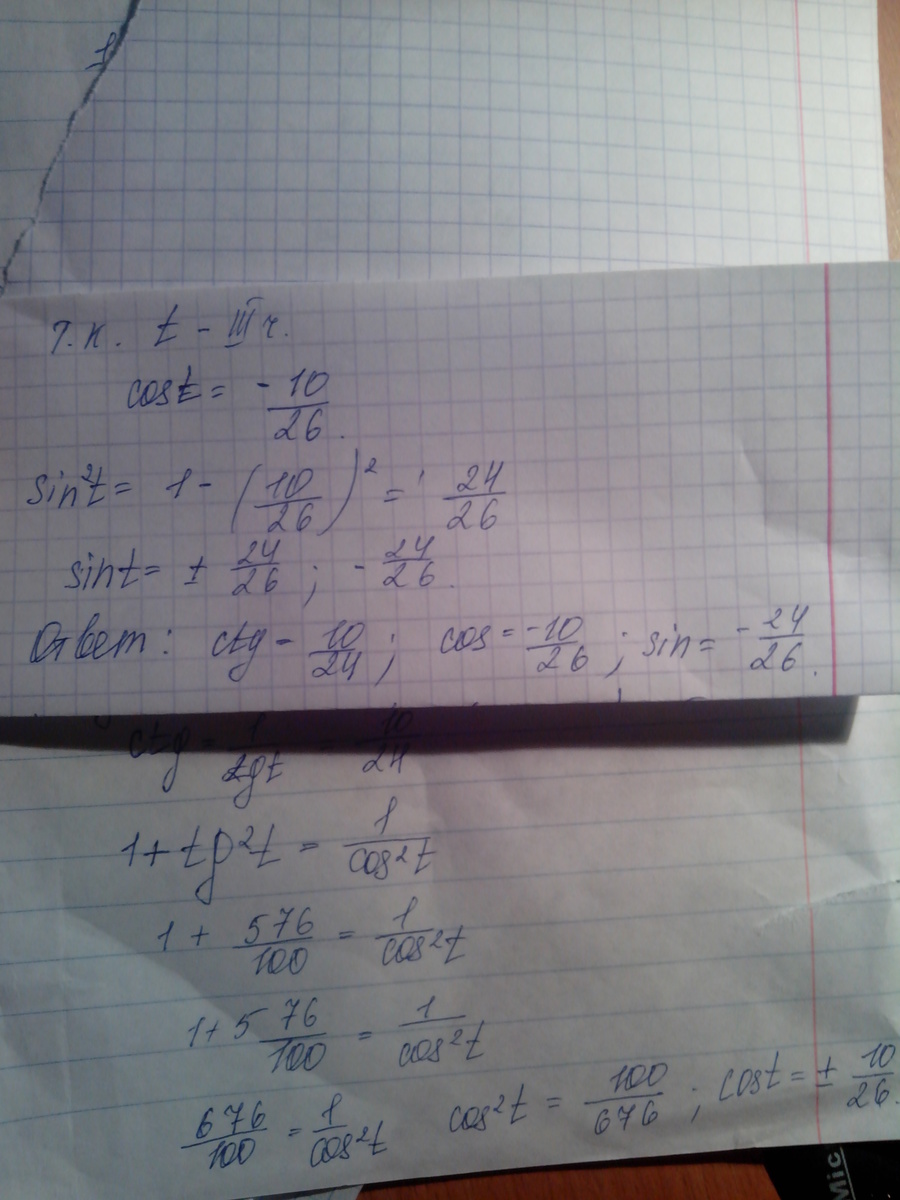 1
т.к. t - III ч.
cost = - 10/26.
sin²t = 1 - (10/26)² = 24/26
sint = ± 24/26; - 24/26.
Ответ: ctg - 10/24; cos = -10/26; sin = - 24/26.
ctg = 1/tgt = 10/24
1 + tg²t = 1/cos²t
1 + 576/100 = 1/cos²t
1 + 5 76/100 = 1/cos²t
676/100 = 1/cos²t cos²t = 100/676; cost = ± 10/26.
Mic